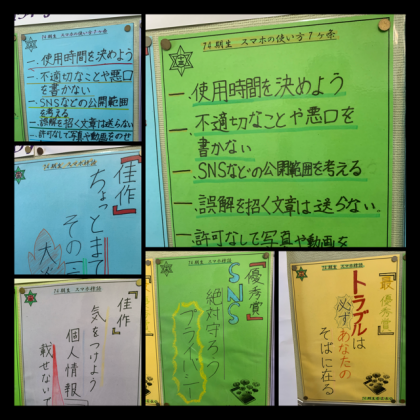 74期生 スマホの使い方7ヶ条
一.使用時間を決めよう
一.不適切なことや悪口
を書かない
一.SNSなどの公開範囲
を考える
一.誤解を招く文章は送らない
一.許可なしで写真や動画をのせ
74期生 スマホの使い方7ヶ条
一.使用時間を決めよう
一.不適切なことや悪口を
書かない
一.SNSなどの公開範囲を考える
一.誤解を招く文章は送らない。
一.許可なしで写真や動画を
74期生 スマホ標語
『佳作』
ちょっとまて
その一
大
74期生 スマホ標語
『佳作』
気をつけよう
個人情報
載せないで
74期生 スマホ標語
『優秀賞』
SNS
絶対守ろう
プライバシー
74期生 スマホ標語
『最優秀賞』
トラブルは
必ずあなたの
そばに在る